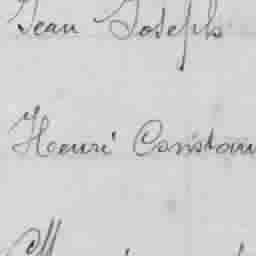 Jean Joseph
Henri Constan